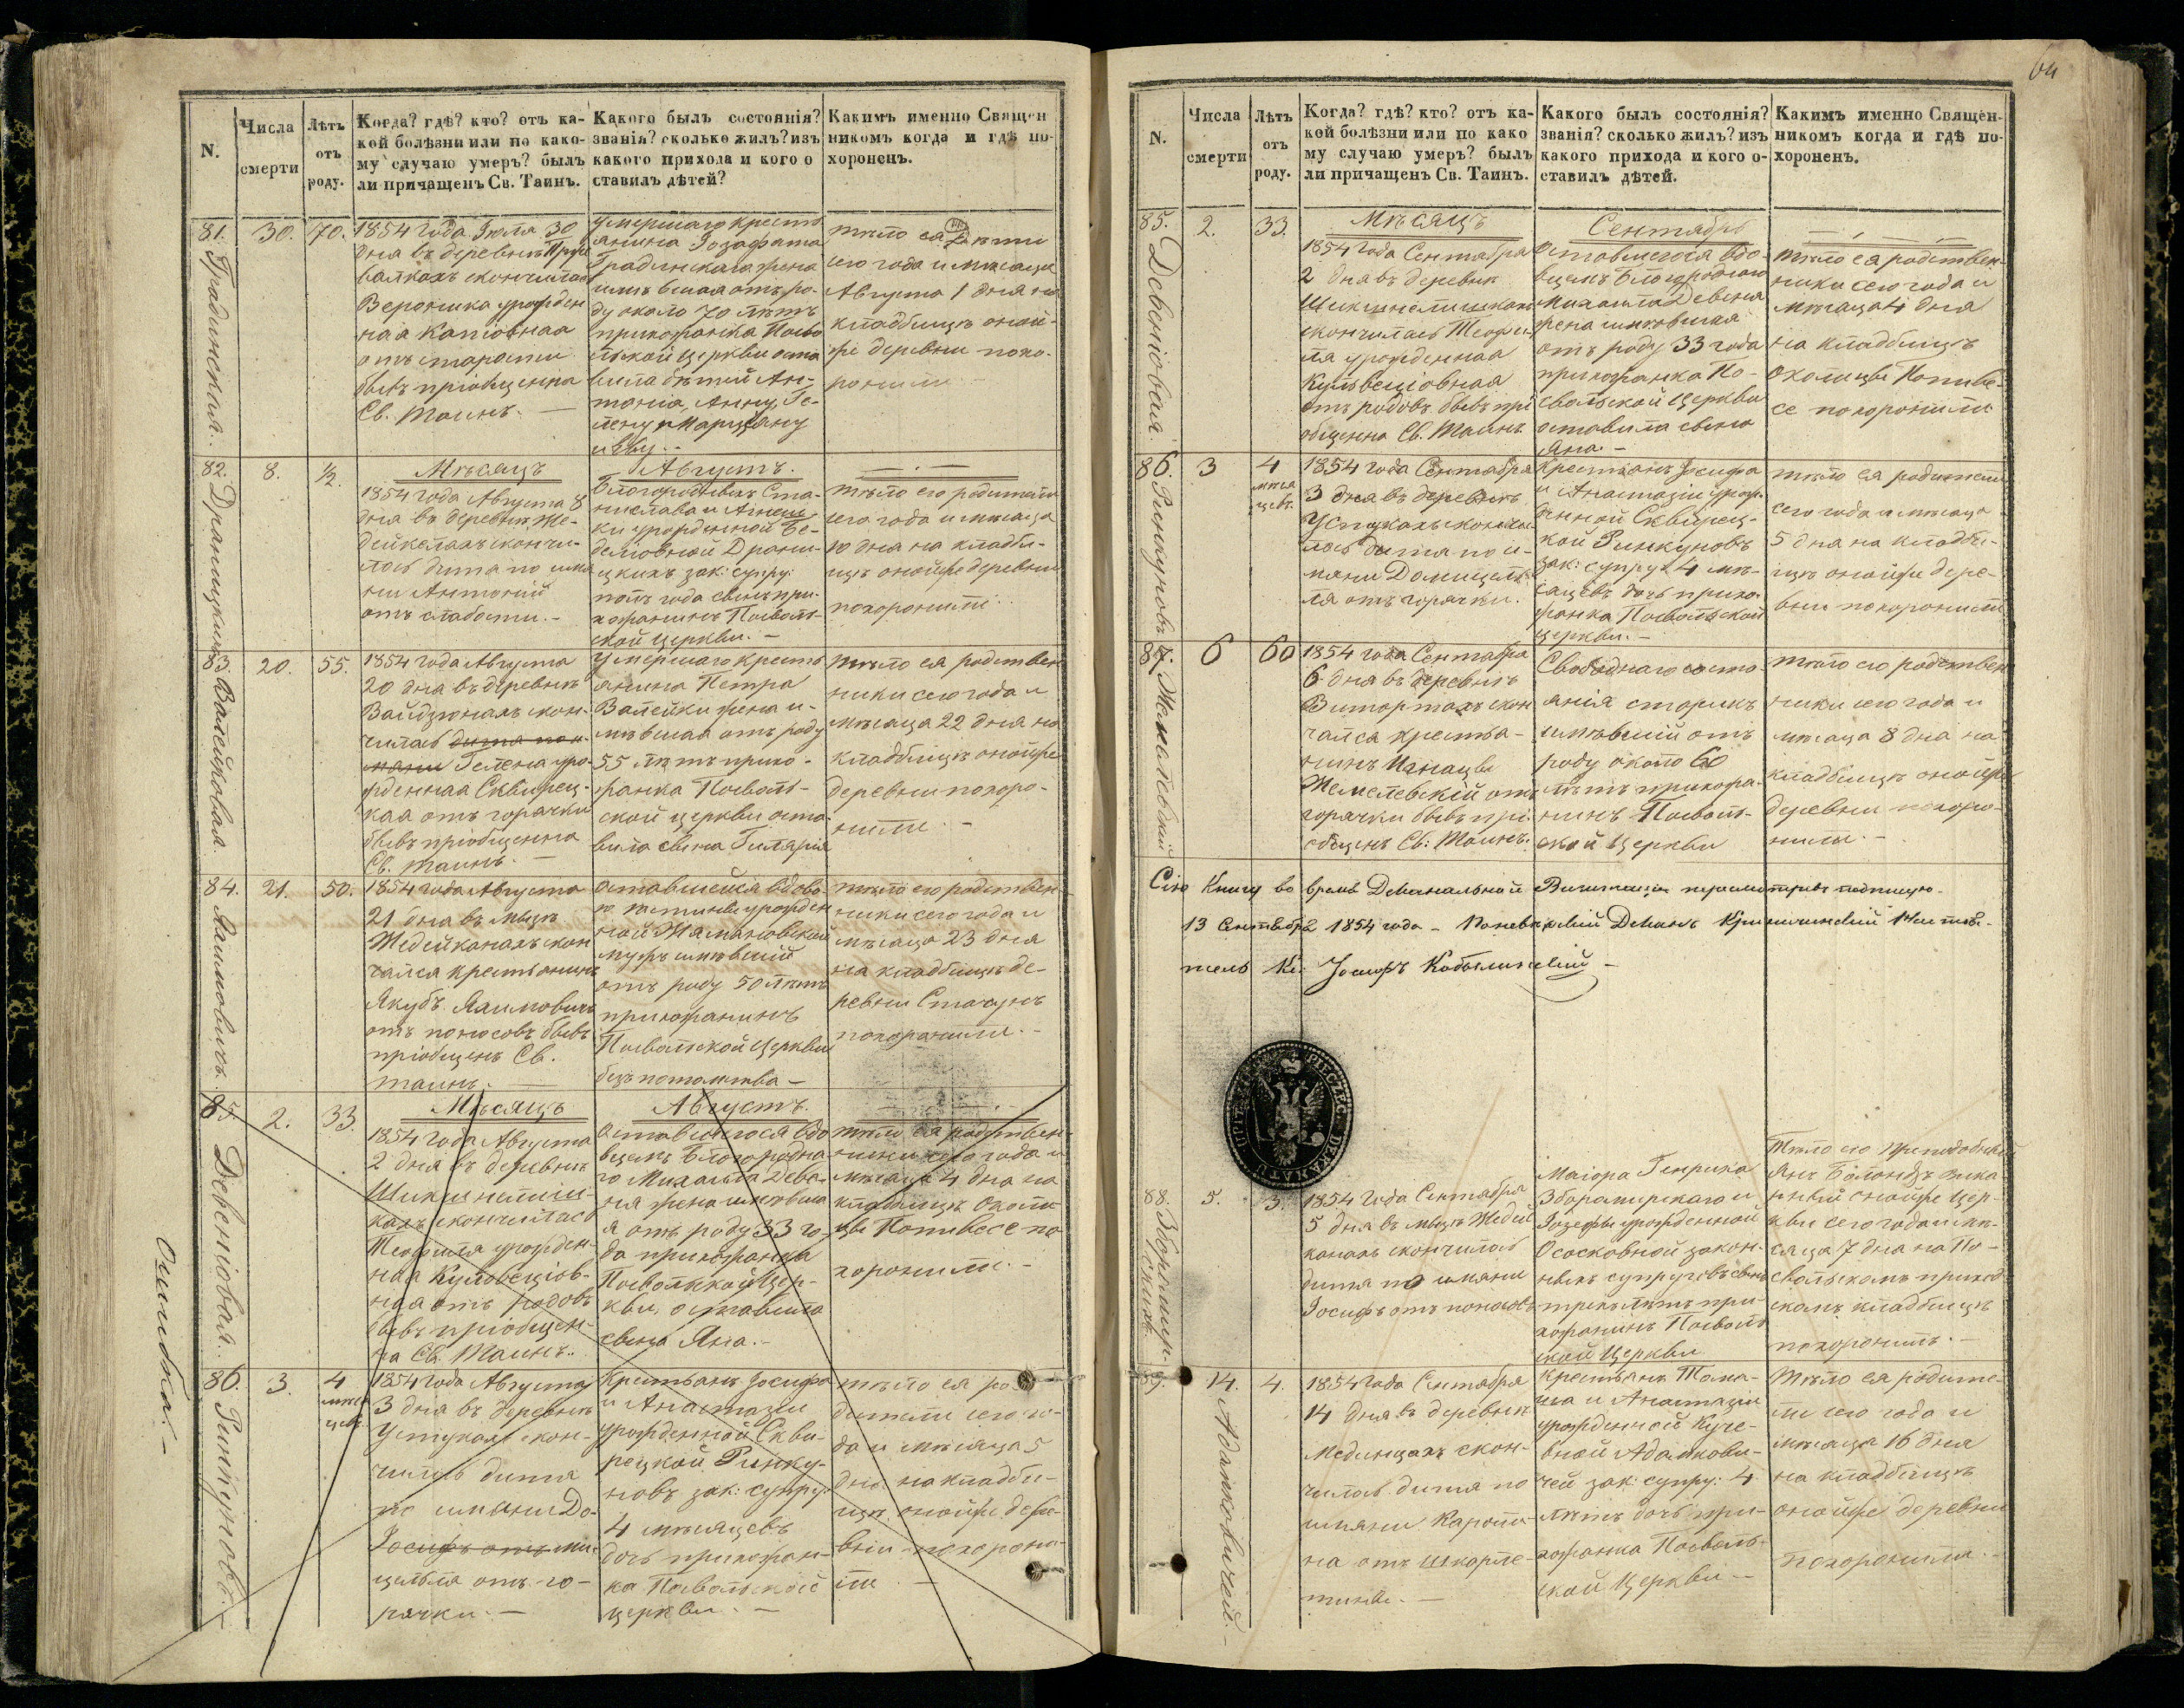 N.
Числа
смерти
Лѣтъ
отъ
роду.
Когда? гдѣ? кто? отъ ка-
кой болѣзни или по како-
му случаю умеръ? былъ
ли причащенъ Св. Таинъ.
Какого былъ состоянія?
званія? сколько жилъ? изъ
какого прихода и кого о
ставилъ дѣтей?
Какимъ именно Священ
никомъ когда и гдѣ по-
хороненъ.
81.
Градинская.
30.
70.
1854 года Іюля 30
дня въ деревнѣ
скончилась
Вероника урожден
ная
отъ старости
бывъ пріобщенна
Св. Таинъ. —
Умершаго кресть
янина Іозафата
Градинскаго жена
имѣвшая отъ ро-
ду около 70 лѣтъ
прихожанка Посво
льской Церкви оста
вила дѣтей Ан-
тонія, Анну, Ге-
лену и Марцяну
и Еву. -
тѣло ея дѣти
сего года и мѣсяца
Августа 1 дня на
кладбищѣ оной-
же деревни похо-
ронили —
82.
8.
½.
Мѣсяцъ
1854 года Августа 8
дня въ деревнѣ Же-
дейкелахъ скончи-
лось дитя по име
ни Антоній
отъ слабости. -
Августъ.
Благородныхъ Ста-
нислава и
ки урожденной Бе-
зак: супру:
полъ года сынъ при-
хожанинъ Посволь-
ской Церкви. —
тѣло его родители
сего года и мѣсяца
10 дня на кладби-
щѣ онойже деревни
похоронили.
83.
Валейковая.
20.
55.
1854 года Августа
20 дня въ деревнѣ
Вайдзюнахъ скон-
чилась дитя по и-
мяни Гелена уро-
жденная Сквирец-
кая отъ горячки
бывъ пріобщенна
Св. Таинъ. —
Умершаго кресть
янина Петра
Валейки жена и-
мѣвшая отъ роду
55 лѣтъ прихо-
жанка Посволь-
ской Церкви оста
вила сына Гилярія
тѣло ея родствен
ники сего года и
мѣсяца 22 дня на
кладбищѣ онойже
деревни похоро-
нили. —
84.
Яхимовичъ.
21.
50.
1854 года Августа
21 дня въ мѣст:
Жедейканахъ скон
чался крестьянинъ
Якубъ Яхимовичъ
отъ поносовъ бывъ
пріобщенъ Св.
Таинъ. —
Оставшейся вдово-
ю урожден
ной
мужъ имѣвшій
отъ роду 50 лѣтъ
прихожанинъ
Посвольской Церкви
безъ потомства —
тѣло его родствен-
ники сего года и
мѣсяца 23 дня
на кладбищѣ де-
ревни
похоронили. -
85.
Девеніовая.
2.
33.
Мѣсяцъ
1854 года Августа
2 дня въ деревнѣ
Шикшнелиш-
кахъ скончилась
Теофиля урожден-
ная
ная отъ родовъ
бывъ пріобщен-
на Св. Таинъ.
Августъ.
Оставшагося вдо
вцемъ Благородна
го Михаила Деве-
ня жена имѣвша
я отъ роду 33 го-
да прихожанка
Посвольской Цер-
кви, оставила
сына Яна. -
тѣло ея родствен-
ники сего года и
мѣсяца 4 дня на
кладбищѣ Околи
цы Поливесе по
хоронили. -
86.
Ринкуновъ.
3.
4
мѣся
цевъ
1854 года Августа
3 дня въ деревнѣ
Устукахъ скон-
чилась дитя
по имяни До-
Іосифъ отъ ми-
целля отъ го-
рячки. —
Крестьянъ Іосифа
и Анастазіи
урожденной Скви-
рецкой Ринку-
новъ зак: супру:
4 мѣсяцевъ
дочь прихожан-
ка Посвольской
Церкви. —
тѣло ея ро
дители сего го-
да и мѣсяца 5
дня на кладби-
щѣ онойже дере-
вни похорони-
ли. —
Ошибка. -
64
N.
Числа
смерти
Лѣтъ
отъ
роду.
Когда? гдѣ? кто? отъ ка-
кой болѣзни или по како
му случаю умеръ? былъ
ли причащенъ Св. Таинъ.
Какого былъ состоянія?
званія? сколько жилъ? изъ
какого прихода и кого о-
ставилъ дѣтей.
Какимъ именно Священ-
никомъ когда и гдѣ по-
хороненъ.
85.
Девеніовая.
2.
33.
Мѣсяцъ
1854 года Сентября
2 дня въ деревнѣ
Шикшнелишкахъ
скончилась Теофи-
ля урожденная
отъ родовъ бывъ прі
общенна Св. Таинъ.
Сентябрь
Оставшегося вдо-
вцемъ Благороднаго
Михаила Девеня
жена имѣвшая
отъ роду 33 года
прихожанка По-
свольской Церкви
оставила сына
Яна. —
тѣло ея родствен-
ники сего года и
мѣсяца 4 дня
на кладбищѣ
Околицы Поливе-
се похоронили
86.
Ринкуновъ
3
4
мѣся
цевъ.
1854 года Сентября
3 дня въ деревнѣ
Устукахъ скончи-
лась дитя по и-
мяни Домицел-
ля отъ горячки.
Крестьянъ Іосифа
и Анастазіи урож-
денной Сквирец-
кой Ринкуновъ
зак: супру: 4 мѣ-
сяцевъ дочь прихо-
жанка Посвольской
Церкви. —
тѣло ея родители
сего года и мѣсяца
5 дня на кладби-
щѣ онойже дере-
вни похоронили
87.
Жемелевскій
6
60
1854 года Сентября
6 дня въ деревнѣ
Витортахъ скон
чался крестья-
нинъ Игнацы
Жемелевскій отъ
горячки бывъ прі
общенъ Св: Таинъ.
Свободнаго состо
янія старикъ
имѣвшій отъ
роду около 60
лѣтъ прихожа-
нинъ Посволь-
ской Церкви
тѣло его родствен
ники сего года и
мѣсяца 8 дня на
кладбищѣ онойже
деревни похоро-
нили. —
Сію Книгу во время Деканальной Визитаціи пересмотривъ подписую.
13 Сентября 1854 года — Поневѣжскій Деканъ Криничинскій Насто-
тель Кс: Іосифъ Кобылинскій —
88.
5.
3.
1854 года Сентября
5 дня въ мѣст: Жедей
канахъ скончилась
дитя по имяни
Іосифъ отъ поносовъ
Маіора Генриха
и
Іозефы урожденной
закон-
ныхъ супруговъ сынъ
трехъ лѣтъ при-
хожанинъ Посволь
ской Церкви
Тѣло его Преподобный
Янъ вика-
рный онойже Цер-
кви сего года и мѣ-
сяца 7 дня на По-
свольскомъ приход
скомъ кладбищѣ
похоронилъ. —
89.
Адамковичей. -
14.
4.
1854 года Сентября
14 дня въ деревнѣ
скон-
чилась дитя по
имяни Кароли-
на отъ шкарла-
тины. —
Крестьянъ Тома-
ша и Анастазіи
урожденной
вной Адамкови-
чей зак: супру: 4
лѣтъ дочь при-
хожанка Посволь-
ской Церкви —
Тѣло ея родите-
ли сего года и
мѣсяца 16 дня
на кладбищѣ
онойже деревни
похоронили. -